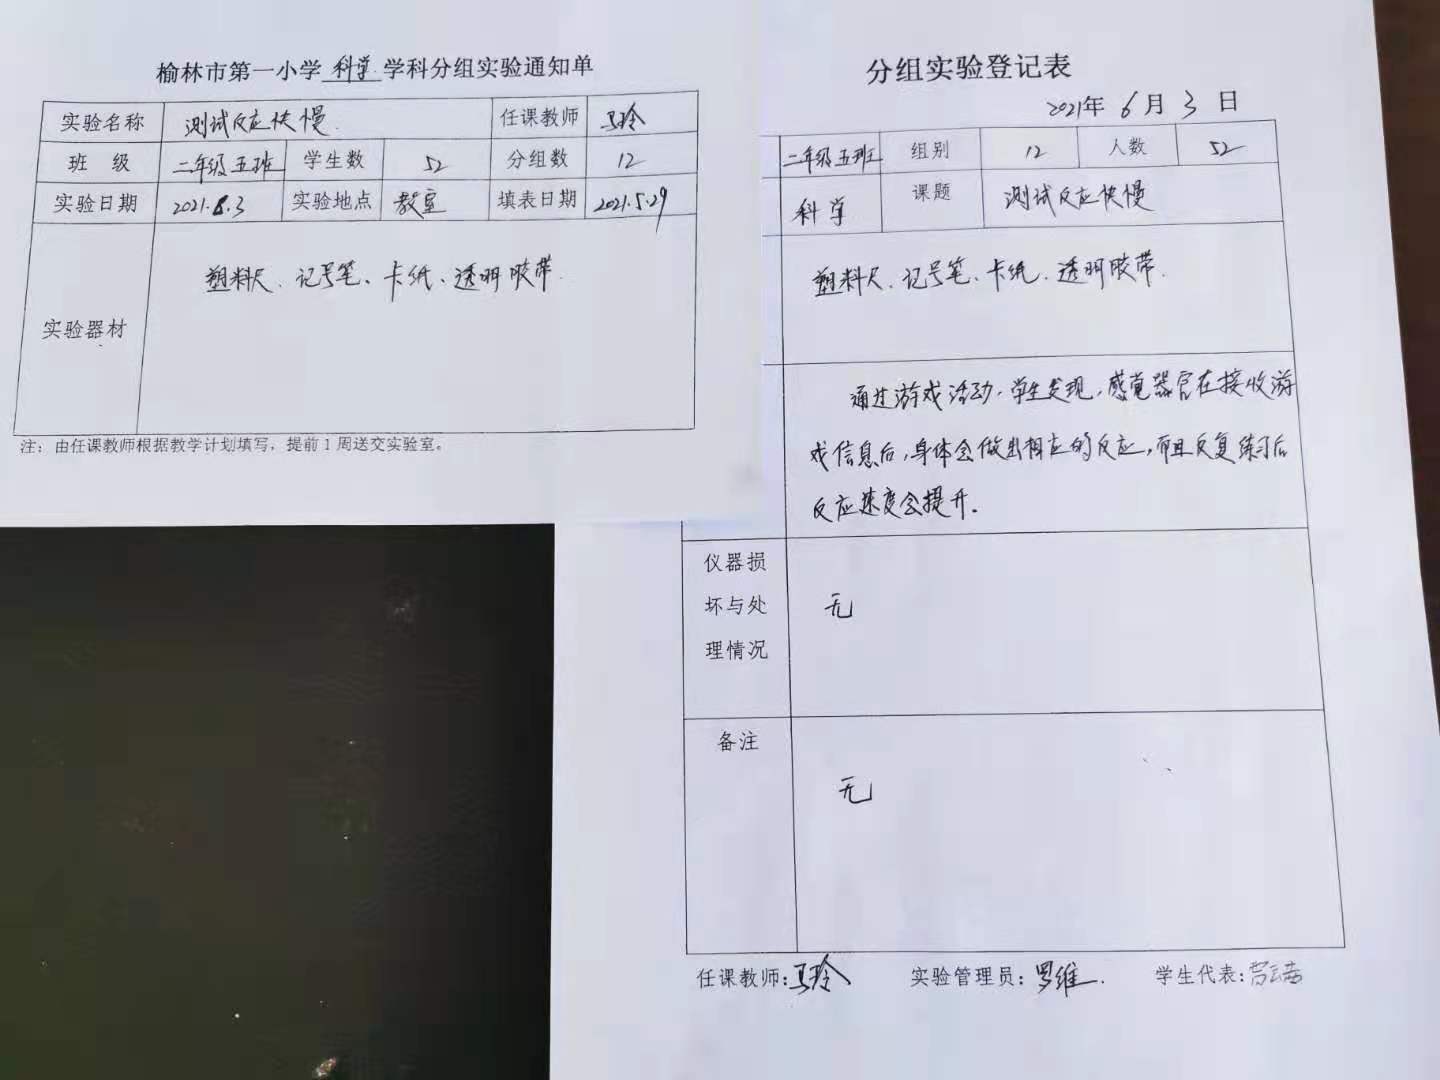 榆林市第一小学科学学科分组实验通知单
实验名称 测试反应快慢 任课教师 马玲
班 级 二年级五班 学生数 52 分组数 12
实验日期 2021.6.3 实验地点 教室 填表日期 2021.5.29
实验器材 塑料尺、记号笔、卡纸、透明胶带.
注：由任课教师根据教学计划填写，提前1周送交实验室。
分组实验登记表
2021年 6 月 3 日
二年级五班 组别 12 人数 52
科学 课题 测试反应快慢
塑料尺、记号笔、卡纸、透明胶带.
通过游戏活动，学生发现，感觉器官在接收游
戏信息后，身体会做出相应的反应，而且反复练习后
反应速度会提升.
仪器损
坏与处 无
理情况
备注
无
任课教师：马玲 实验管理员：罗维. 学生代表：